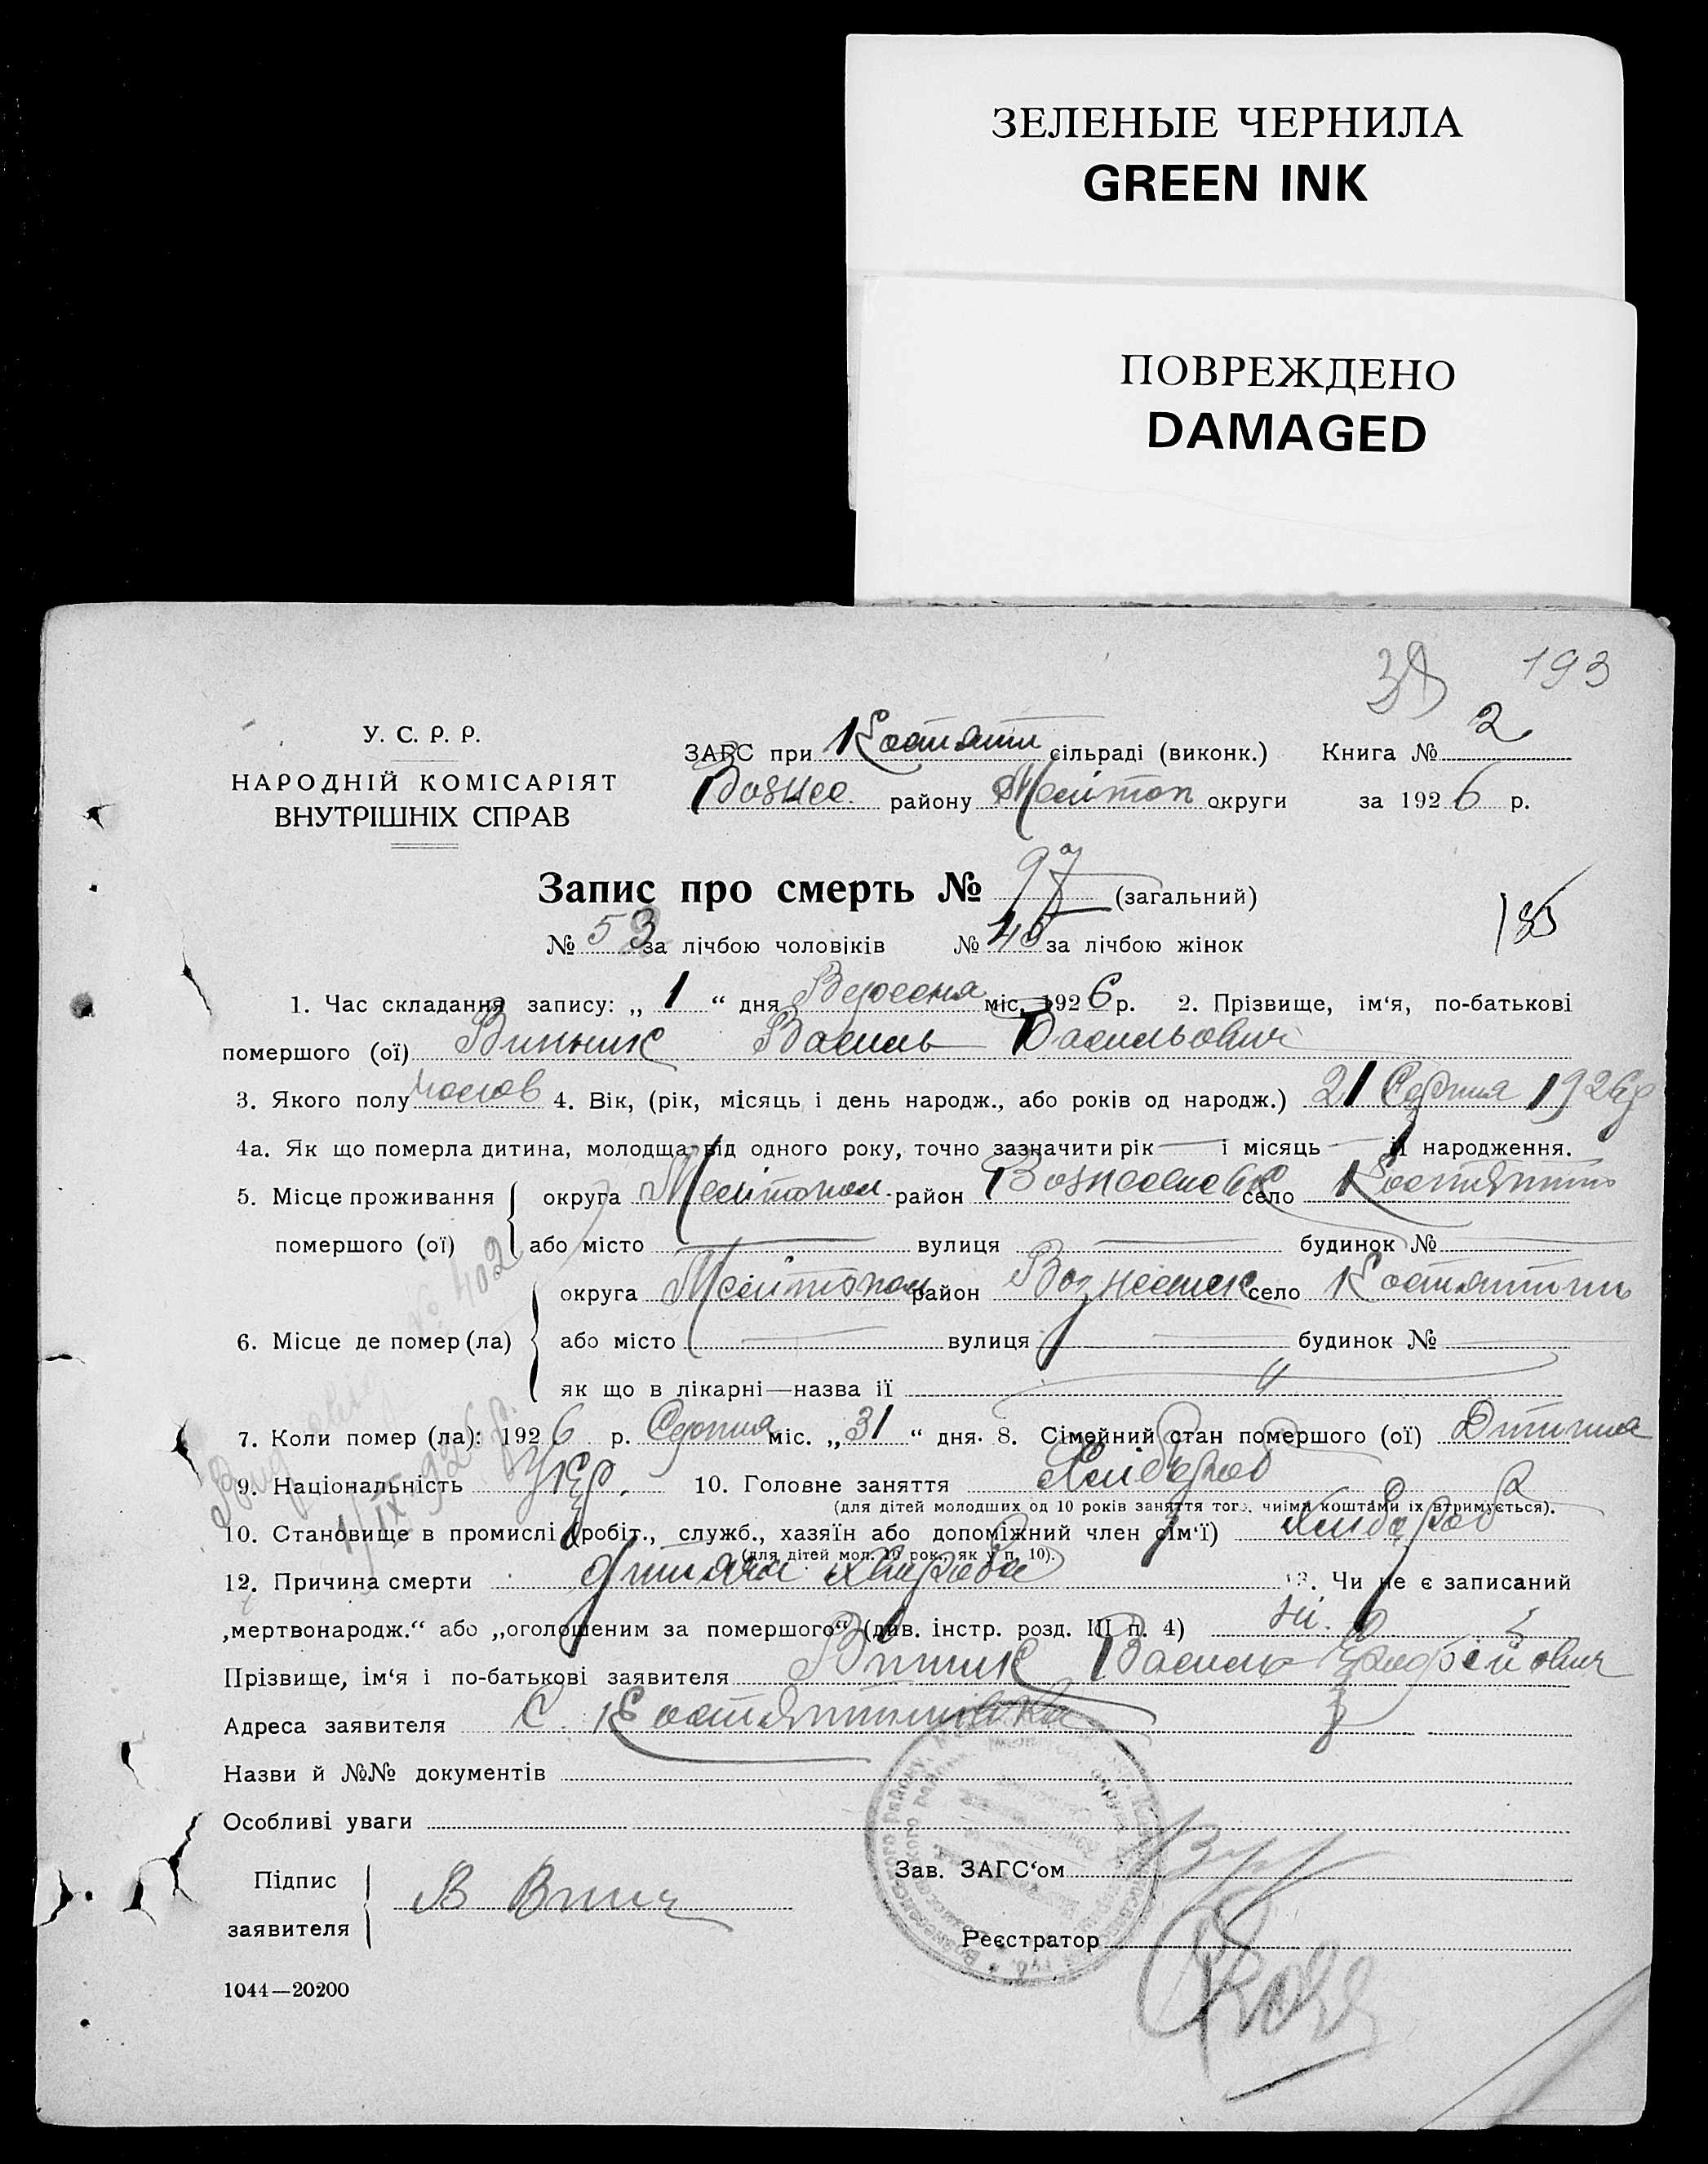 ЗЕЛЕНЫЕ ЧЕРНИЛА
GREEN INK
ПОВРЕЖДЕНО
DAMAGED
193
У. С. Р. Р.
НАРОДНІЙ КОМІСАРІЯТ
ВНУТРІШНІХ СПРАВ
ЗАГС при Костянти сільраді (виконк.) Книга № 2
Вознес. району Мелітоп округи за 1926 р.
Запис про смерть № 97 (загальний)
№ 53 за лічбою чоловіків № за лічбою жінок
185
1. Час складання запису: „ 1 “ дня Вересня міс. 1926 р. 2. Прізвище, ім‘я, по-батькові
помершого (ої) Винник Василь Васильович
3. Якого полу чолов 4. Вік, (рік, місяць і день народж., або років од народж.) 21 Серпня 1926 р
4а. Як що померла дитина, молодша від одного року, точно зазначити рік — і місяць — її народження.
5. Місце проживання округа Мелітопол. район Вознесенськ село Костянтин
помершого (ої) або місто вулиця будинок №
округа Мелітопол район Вознесенск село Костянтин
6. Місце де помер (ла) або місто вулиця будинок №
як що в лікарні—назва її
№ 402
7. Коли помер (ла): 1926 р. Серпня міс. „31“ дня. 8. Сімейний стан помершого (ої) Дитина
9. Національність Укр. 10. Головне заняття Хлибороб
(для дітей молодших од 10 років заняття того, чиїми коштами їх втримується).
10. Становище в промислі (робіт., служб., хазяїн або допоміжний член сім‘ї) Хлибороб
(для дітей мол. 10 рок., як у п. 10).
12. Причина смерти 13. Чи не є записаний
„мертвонародж.“ або „оголошеним за помершого“ (див. інстр. розд. III п. 4) ні.
Прізвище, ім‘я і по-батькові заявителя Винник Василь
Адреса заявителя С. Костянтинивка
Назви й №№ документів
Особливі уваги
Підпис
заявителя
В Винн
Зав. ЗАГС‘ом
Реєстратор
1044—20200